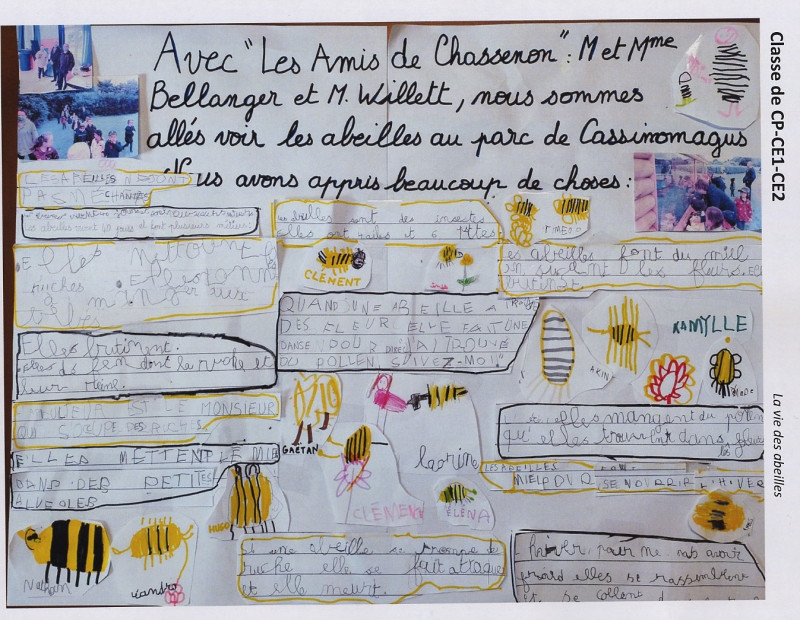 Classe de CP-CE1-CE2
La vie des abeilles
Avec "Les Amis de Chassenon": M et Mme
Bellanger et M. Willett, nous sommes
allés voir les abeilles au parc de Cassinomagus
Nous avons appris beaucoup de choses:
LES ABEILLES NE SONT
PAS MÉCHANTES
les abeilles vivent 40 jours et font plusieurs métiers
les abeilles sont des insectes
elles ont ailes et 6 pattes
TIMEO
les abeilles font du miel
en suçant les fleurs. Elles
butinent
CLÉMENT
Elles
ruches
à manger aux
QUAND UNE ABEILLE A TROUVÉ
DES FLEUR ELLE FAIT UNE
DANSE POUR DIRE J'AI TROUVÉ
DU POLLEN SUIVEZ-MOI!"
Elles butinent.
dont la ruche et
leur reine.
KAMYLLE
L'APICULTEUR EST LE MONSIEUR
QUI S'OCCUPE DES RUCHES
ENZO
GAETAN
elles mangent du pollen
qu'elles trouvent dans
les fleurs
ELLES METTENT LE MIEL
DANS DES PETITES
ALVÉOLES
HUGO
Laorine
CLÉMENT
ELENA
LES ABEILLES FONT
MIEL POUR SE NOURRIR L'HIVER
Nathan
Léandro
Si une abeille se trompe de
ruche elle se fait attaquer
et elle meurt.
hiver, pour ne pas avoir
froid elles se rassemblent
et se collent